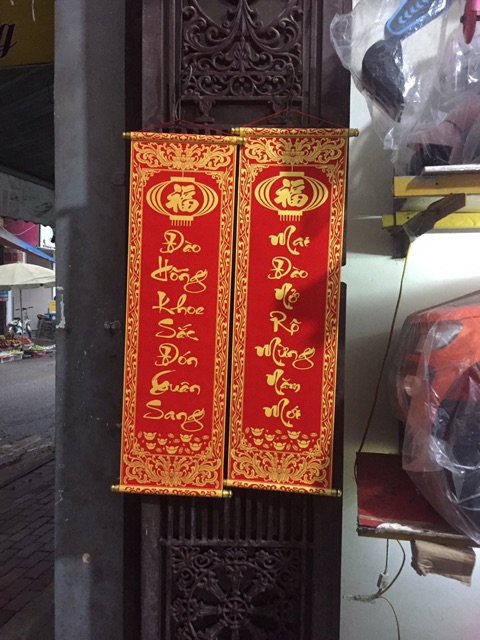 福
Đào
Hồng
Khoe
Sắc
Đón
Xuân
Sang
福
Mai
Đào
Nở
Rộ
Mừng
Năm
Mới